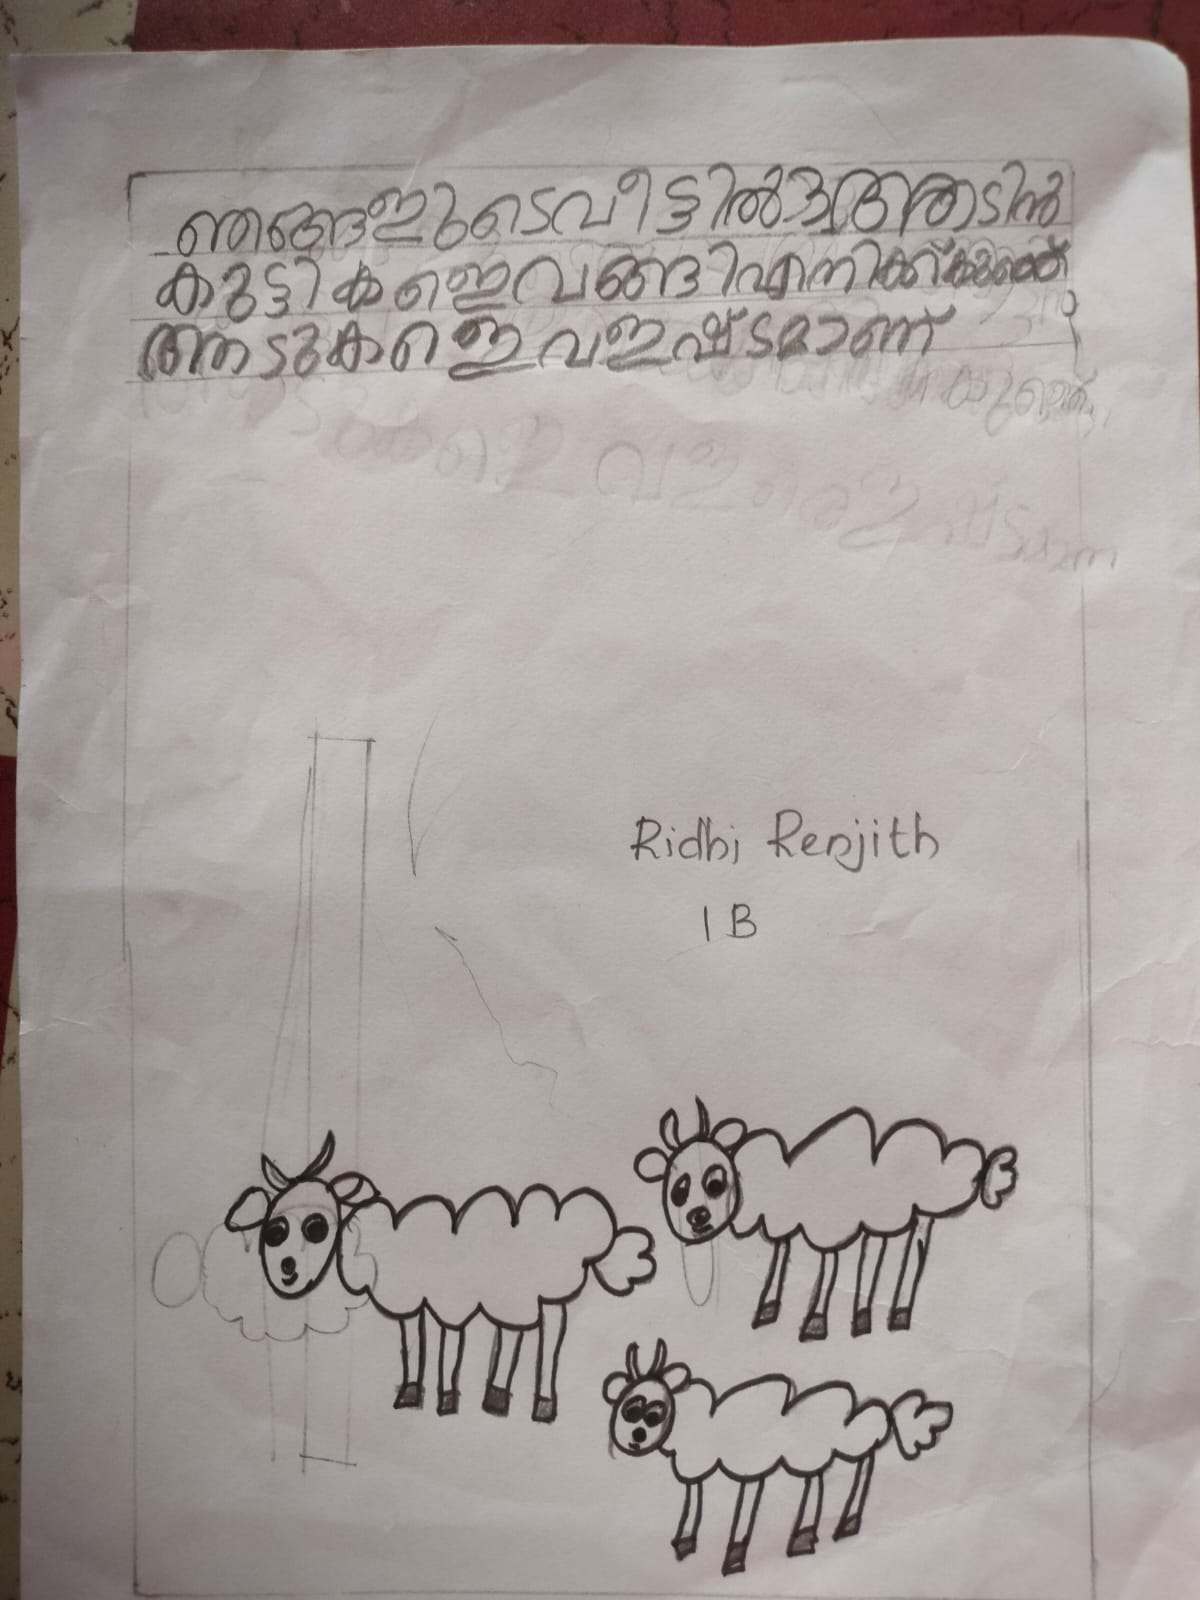 ഞങ്ങളുടെ വീട്ടിൽ ആടിൻ
കുട്ടികളെ വങ്ങി എനിക്ക്
ആടുകളെ വളഇഷ്ടമാണ്
Ridhi Renjith
1 B